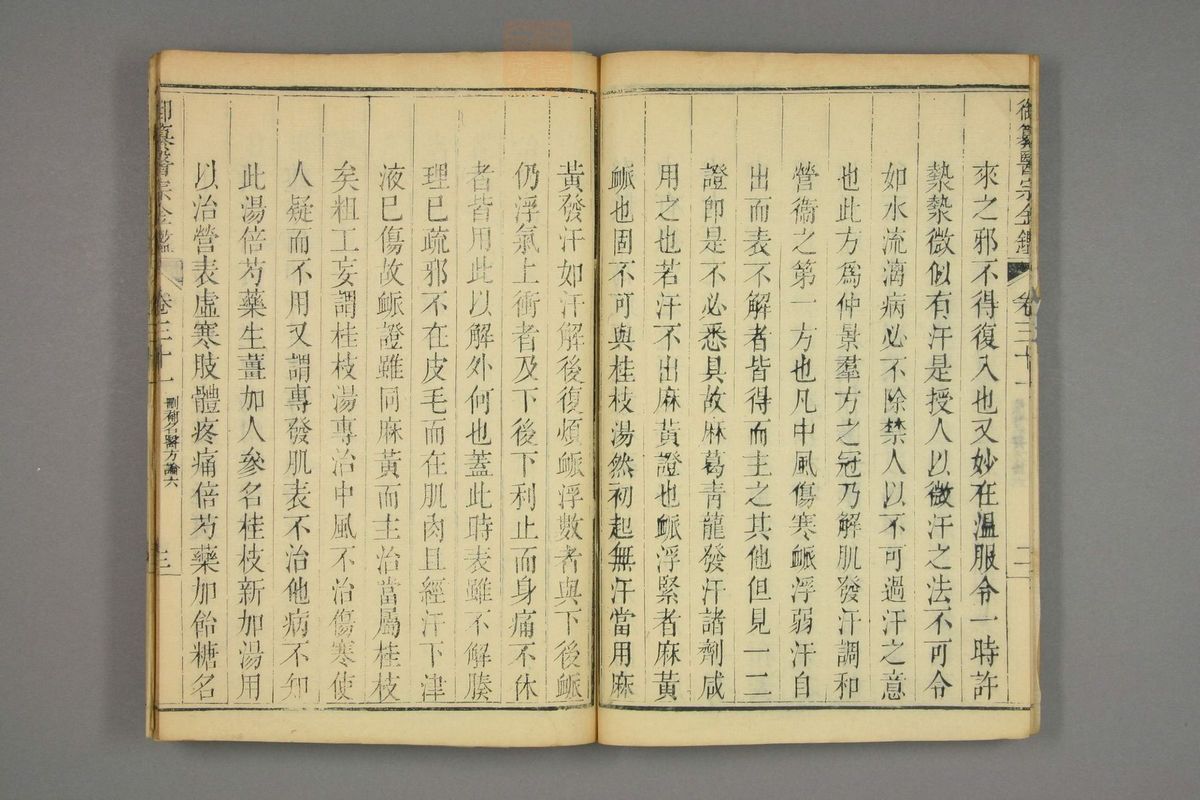 御纂醫宗金鑑 卷三十一 二
來之邪不得復入也又妙在溫服令一時許
漐漐微似有汗是授人以微汗之法不可令
如水流漓病必不除禁人以不可過汗之意
也此方爲仲景羣方之冠乃解肌發汗調和
營衞之第一方也凡中風傷寒脈浮弱汗自
出而表不解者皆得而主之其他但見一二
證卽是不必悉具故麻葛靑龍發汗諸劑咸
用之也若汗不出麻黃證也脈浮緊者麻黃
脈也固不可與桂枝湯然初起無汗當用麻
黃發汗如汗解後復煩脈浮數者與下後脈
仍浮氣上衝者及下後下利止而身痛不休
者皆用此以解外何也蓋此時表雖不解腠
理已疏邪不在皮毛而在肌肉且經汗下津
液已傷故脈證雖同麻黃而主治當屬桂枝
矣粗工妄謂桂枝湯專治中風不治傷寒使
人疑而不用又謂專發肌表不治他病不知
此湯倍芍藥生薑加人參名桂枝新加湯用
以治營表虛寒肢體疼痛倍芍藥加飴糖名
御纂醫宗金鑑 卷三十一 刪補名醫方論六 三